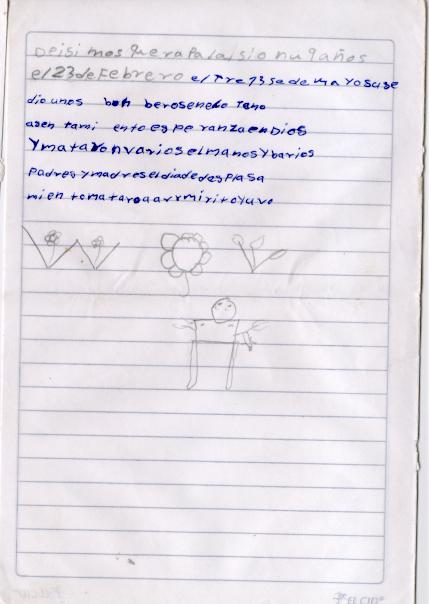 Deisi mosquera Palasio nu 9 años
el 23 de Febrero el Tre 73 se de mayo su se
dio unos bon beros en el o Teno
asen tami ento es pe ranza en Dios
Y mataron varios elmanos y barios
padres y madres el dia de des plasa
mien to mataro a arrmirito yuvo